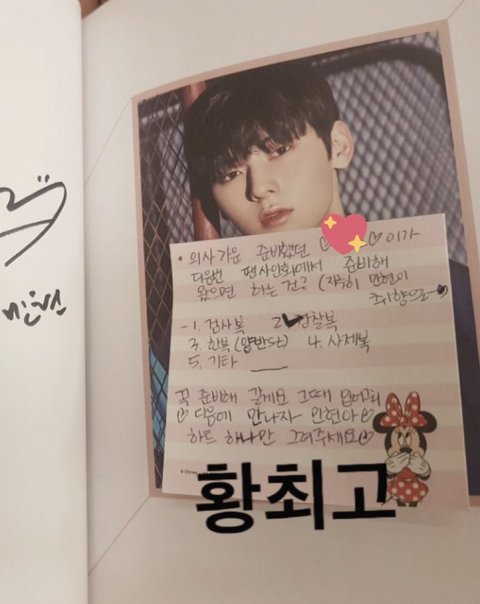 민현
• 의사가운 준비했던 ♡ ♡ 이가
다음번 팬사인회에서 준비해
왔으면 하는 건? (지극히 민현이
취향으로~♥
-1. 검사복 2. 경찰복
3. 한복(양반st) 4. 사제복
5. 기타 ___
꼭 준비해 갈게요 그때 입어줘
♡ 다음에 만나자 민현아♡
하트 하나만 그려주세요♡
황최고